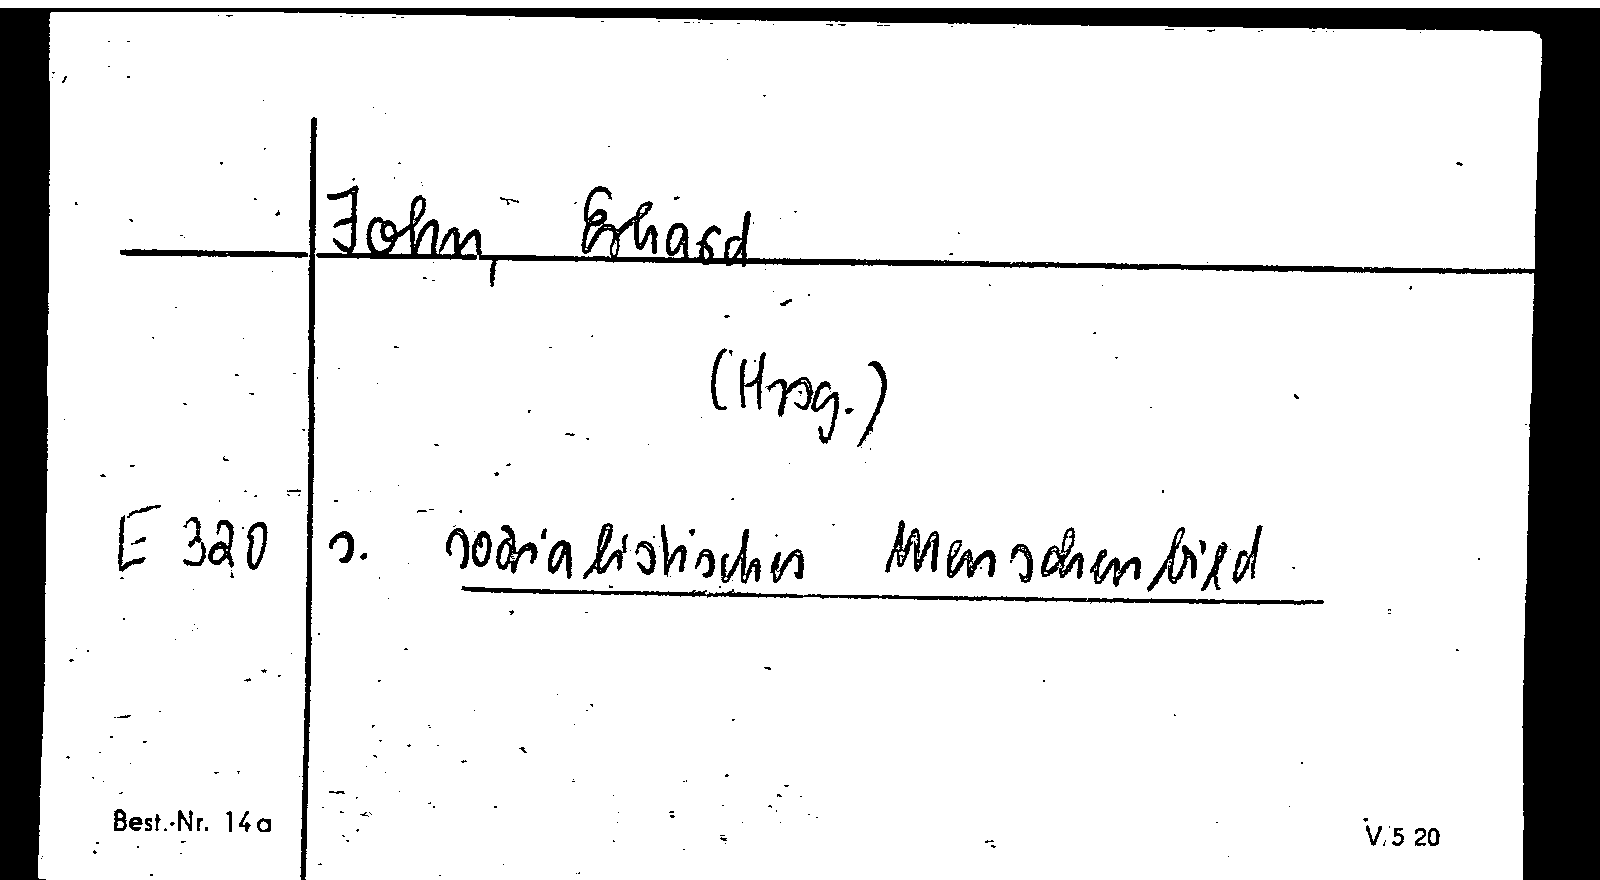 John, Erhard
(Hrsg.)
E 320 s. sozialistisches Menschenbild
Best.-Nr. 14a V/5 20